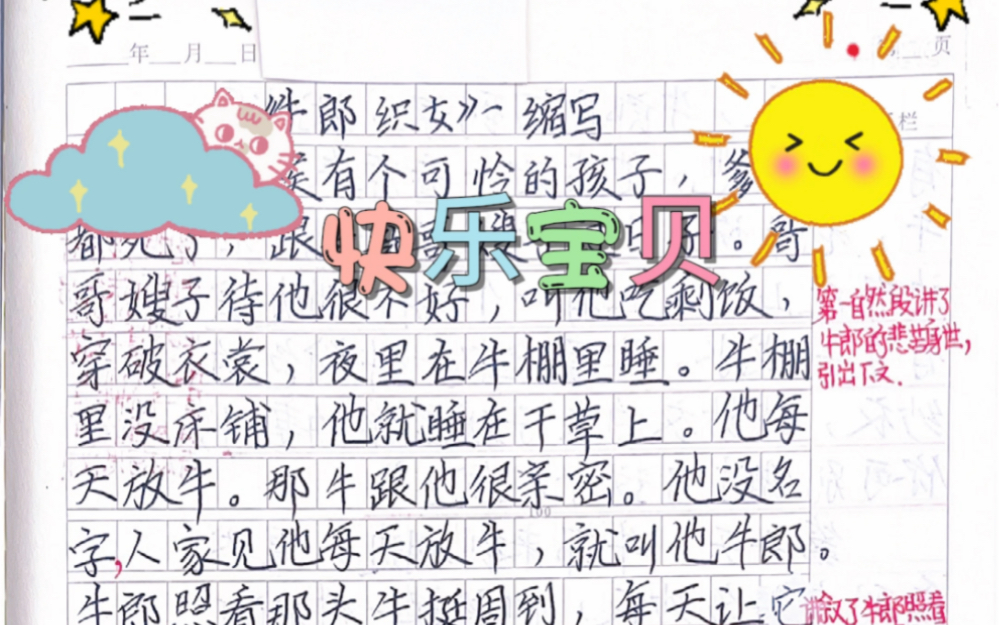 年 月 日 页
栏
郎织女》缩写
有个可怜的孩子，爹
都死了，跟 哥 。哥
快乐宝贝
哥嫂子待他很不好，叫他吃剩饭，
穿破衣裳，夜里在牛棚里睡。牛棚
里没床铺，他就睡在干草上。他每
天放牛。那牛跟他很亲密。他没名
字，人家见他每天放牛，就叫他牛郎。
牛郎照看那头牛挺周到，每天让它
100
第一自然段讲了
牛郎的悲苦身世，
引出下文.
叙了牛郎照看